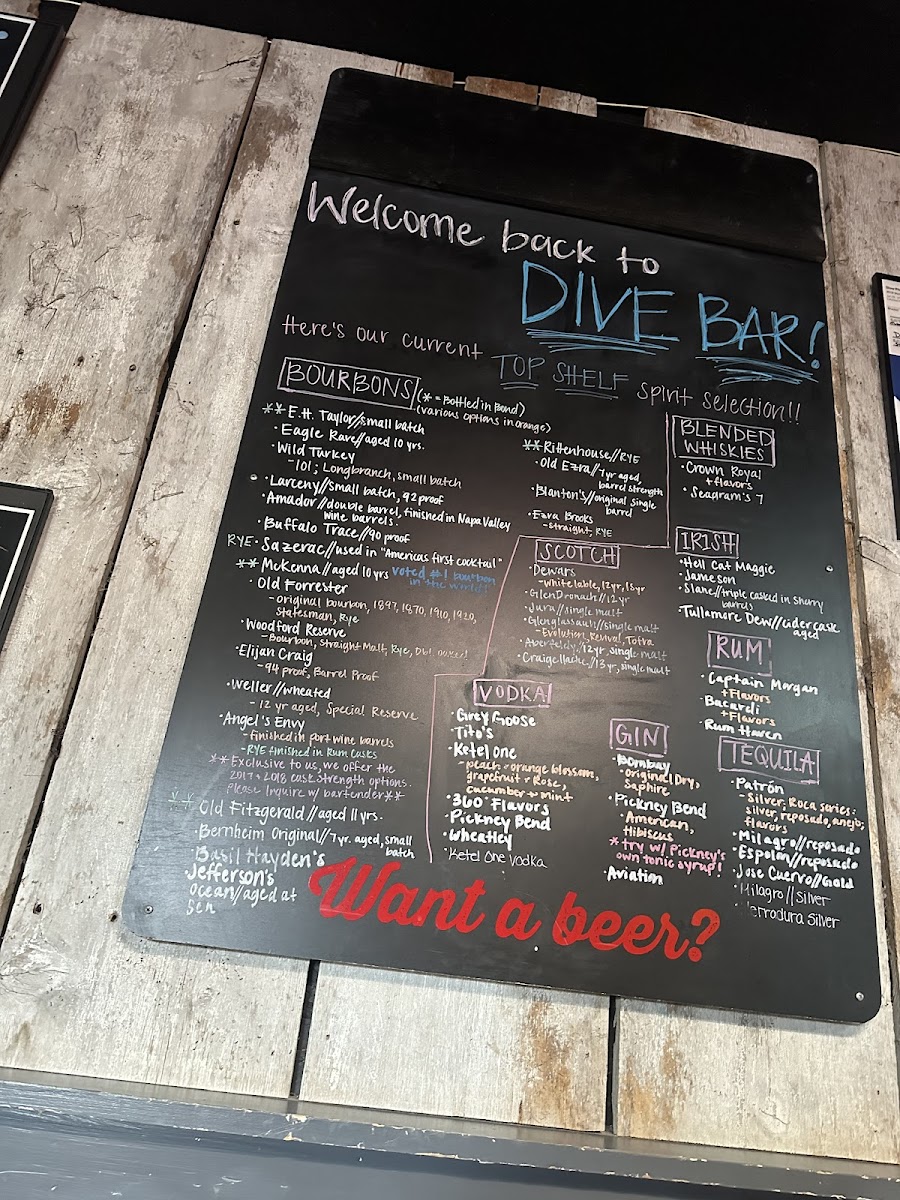 Welcome back to
DIVE BAR!
Here's our current TOP SHELF spirit selection!!
BOURBONS (* = Bottled in Bond)
(various options in orange)
** E.H. Taylor//small batch
· Eagle Rare//aged 10 yrs.
· Wild Turkey
-101; Longbranch, small batch
· Larceny//small batch, 92 proof
· Amador//double barrel, finished in Napa Valley
wine barrels.
· Buffalo Trace//90 proof
RYE · Sazerac//used in "Americas first cocktail"
** McKenna//aged 10 yrs voted #1 bourbon
in the world!
· Old Forrester
-original bourbon, 1897, 1870, 1910, 1920,
Statesman, Rye
· Woodford Reserve
-Bourbon, Straight Malt, Rye, Dbl. oaked
· Elijah Craig
-94 proof, Barrel Proof
· Weller//wheated
-12 yr aged, Special Reserve
· Angel's Envy
-finished in port wine barrels
-RYE finished in Rum Casks
** Exclusive to us, we offer the
2017 + 2018 cask strength options.
Please inquire w/ bartender**
** Old Fitzgerald//aged 11 yrs.
· Bernheim Original//7 yr. aged, small
batch
Basil Hayden's
Jefferson's
Ocean//aged at
Sea
** Rittenhouse//RYE
· Old Ezra//7 yr aged,
barrel strength
· Blanton's//original single
barrel
· Ezra Brooks
-straight, RYE
SCOTCH
· Dewars
-white lable, 12 yr, 15 yr
· GlenDronach//12 yr
· Jura//single malt
· Glenglassault//single malt
-Evolution, Revival, Tofra
· Aberfeldy//12 yr, single malt
· Craigellachie//13 yr, single malt
VODKA
· Grey Goose
· Tito's
· Ketel one
-peach + orange blossom,
grapefruit + Rose,
cucumber + mint
· 360 Flavors
· Pickney Bend
· Wheatley
· Ketel One Vodka
BLENDED
WHISKIES
· Crown Royal
+flavors
· Seagram's 7
IRISH
· Hell Cat Maggie
· Jameson
· Slane//triple casked in sherry
barrels
· Tullamore Dew//cider cask
aged
RUM
· Captain Morgan
+Flavors
· Bacardi
+Flavors
· Rum Haven
GIN
· Bombay
-original Dry,
Saphire
· Pickney Bend
-American,
Hibiscus
* try w/ Pickney's
own tonic syrup!
· Aviation
TEQUILA
· Patrón
-Silver, Roca series:
silver, reposado, anejo,
flavors
· Milagro//reposado
· Espolon//reposado
· Jose Cuervo//Gold
· Milagro//silver
Herradura Silver
Want a beer?